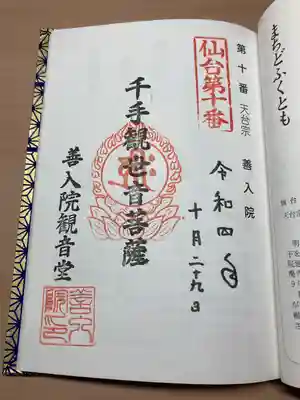 まちどふくとも
第十番 天台宗 善入院
仙台第十番
令和四年
十月二十九日
千手観世音菩薩
善入院観音堂
善入院印